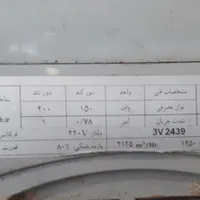 مشخصات فنی واحد دور کند دور تند
توان مصرفی وات ۱۵۰ ۲۰۰
شدت جریان آمپر ۰/۷۸ ۱
3V 2439 ولتاژ: ۲۲۰V
۱۲۵۰ ۲۱۲۵ m³/Hr بازده خنکی: ۸۰٪ قدرت